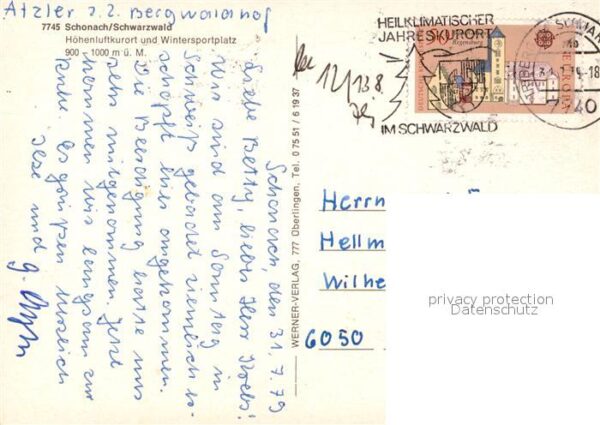 Atzler z. Z. Bergwaldhof
7745 Schonach/Schwarzwald
Höhenluftkurort und Wintersportplatz
900 – 1000 m ü. M.
Schonach, den 31.7.79
Liebe Betty, lieber Herr Krebs!
Wir sind am Sonntag in
Schweiß gebadet ziemlich er-
schöpft hier angekommen.
Die Beerdigung hatte uns
sehr mitgenommen. Jetzt
kommen wir langsam zur
Ruhe. Es grüßen herzlich
Ilse und
WERNER-VERLAG, 777 Überlingen, Tel. 0 75 51 / 6 19 37
HEILKLIMATISCHER
JAHRESKURORT
IM SCHWARZWALD
EUROPA
12/13 8.
Herrn
Hellm
Wilhe
6050
privacy protection
Datenschutz